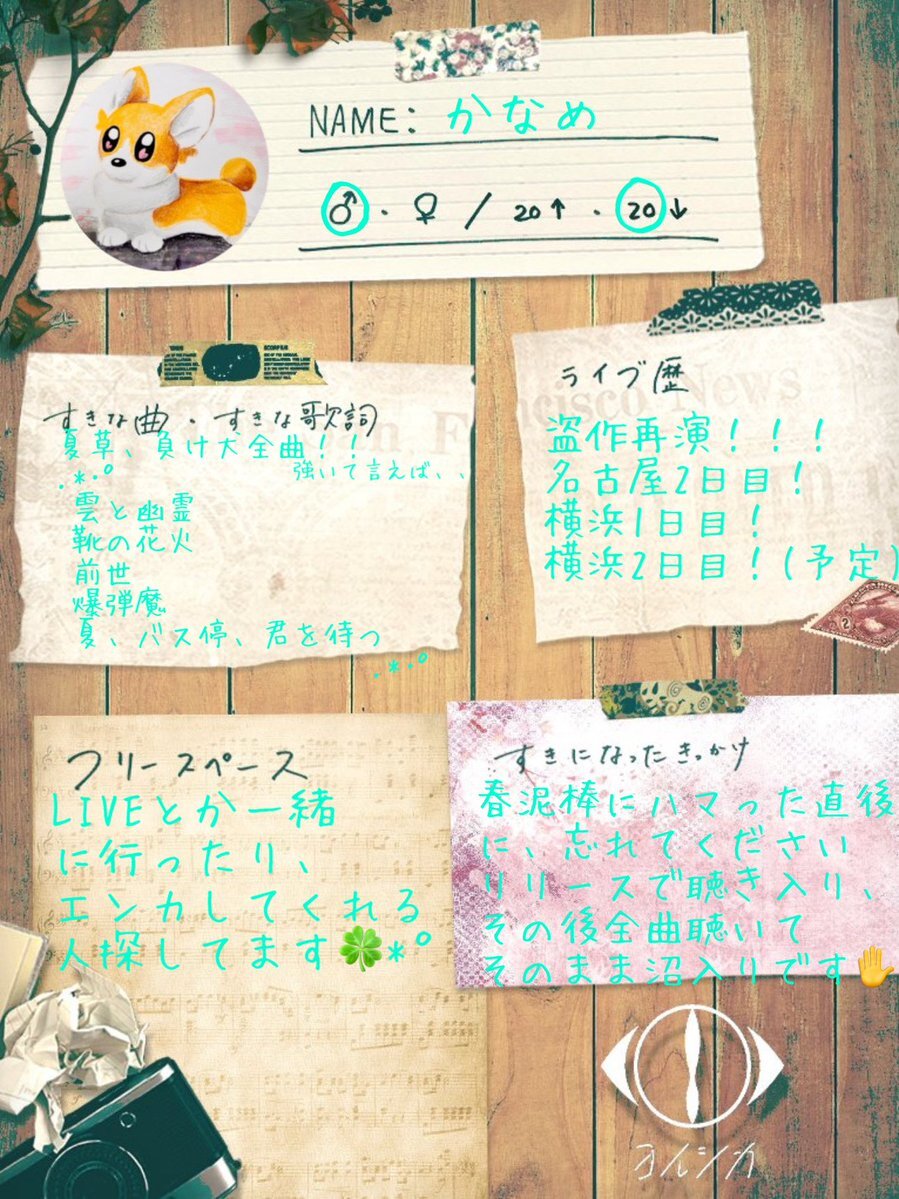 NAME: かなめ
♂・♀ / 20↑・20↓
すきな曲・すきな歌詞
夏草、負け犬全曲！！
強いて言えば、、
雲と幽霊
靴の花火
前世
爆弾魔
夏、バス停、君を待つ
ライブ歴
盗作再演！！！
名古屋2日目！
横浜1日目！
横浜2日目！(予定)
フリースペース
LIVEとか一緒
に行ったり、
エンカしてくれる
人探してます🍀*°
すきになったきっかけ
春泥棒にハマった直後
に、忘れてください
リリースで聴き入り、
その後全曲聴いて
そのまま沼入りです✋
ヨルシカ